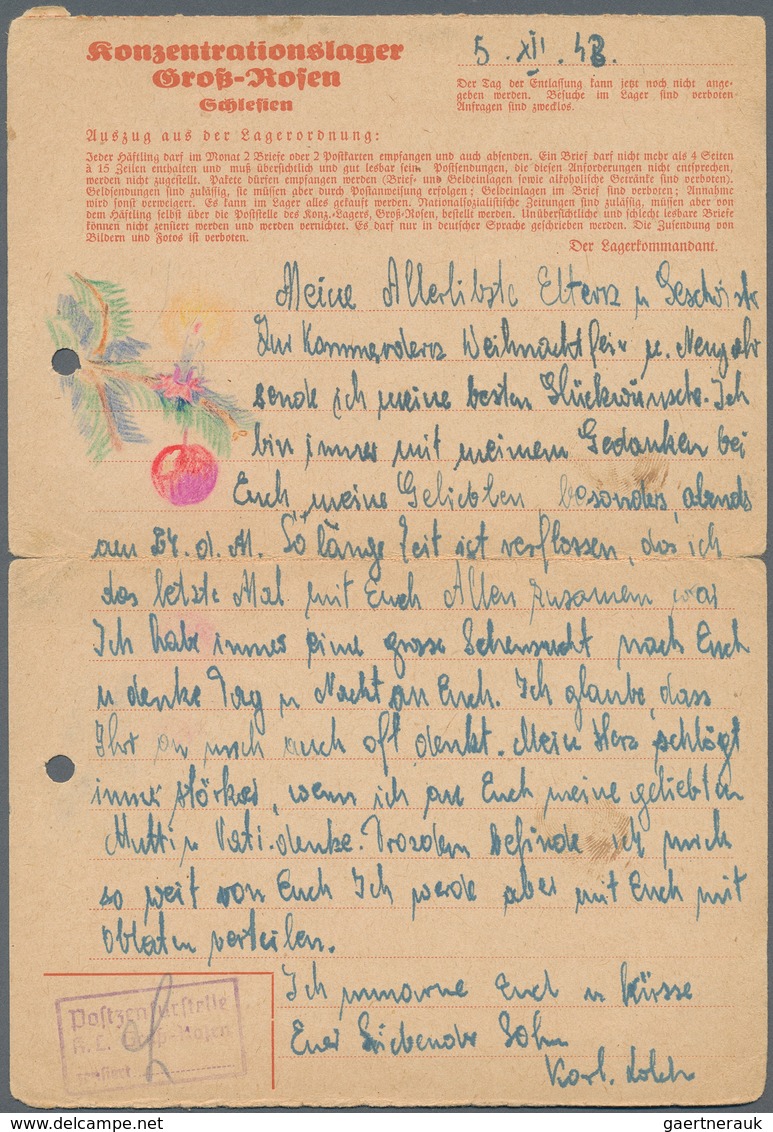 Konzentrationslager
Groß-Rosen
Schlesien
5. XII. 43.
Der Tag der Entlassung kann jetzt noch nicht ange-
geben werden. Besuche im Lager sind verboten.
Anfragen sind zwecklos.
Auszug aus der Lagerordnung:
Jeder Häftling darf im Monat 2 Briefe oder 2 Postkarten empfangen und auch absenden. Ein Brief darf nicht mehr als 4 Seiten
à 15 Zeilen enthalten und muß übersichtlich und gut lesbar sein. Postsendungen, die diesen Anforderungen nicht entsprechen,
werden nicht zugestellt. Pakete dürfen empfangen werden (Brief- und Geldeinlagen sowie alkoholische Getränke sind verboten).
Geldsendungen sind zulässig, sie müssen aber durch Postanweisung erfolgen; Geldeinlagen im Brief sind verboten; Annahme
wird sonst verweigert. Es kann im Lager alles gekauft werden. Nationalsozialistische Zeitungen sind zulässig, müssen aber von
dem Häftling selbst über die Poststelle des Konz.-Lagers, Groß-Rosen, bestellt werden. Unübersichtliche und schlecht lesbare Briefe
können nicht zensiert werden und werden vernichtet. Es darf nur in deutscher Sprache geschrieben werden. Die Zusendung von
Bildern und Fotos ist verboten.
Der Lagerkommandant.
Meine Allerlibste Eltern u Geschwistr
Zur Kommenden Weihnachtfeir u. Neujahr
sende ich meine besten Glückwünsche. Ich
bin immer mit meinem Gedanken bei
Euch, meine Geliebten, besonders abends
am 24. d. M. So länge Zeit ist verflossen, das ich
das letzte Mal mit Euch Allen zusamen war
Ich habe immer eine grosse Sehensucht nach Euch
u denke Tag u Nacht an Euch. Ich glaube, dass
Ihr an mich auch oft denkt. Mein Herz schlägt
immer stärker, wenn ich an Euch meine geliebten
Mutti u Vati denke. Trozdem befinde ich mich
so weit von Euch Ich werde aber mit Euch mit
Oblaten verteilen.
Ich umarme Euch u Küsse
Euer Liebender Sohn
Karl.
Postzensurstelle
K. L. Groß-Rosen
zensiert
gaertnerauk